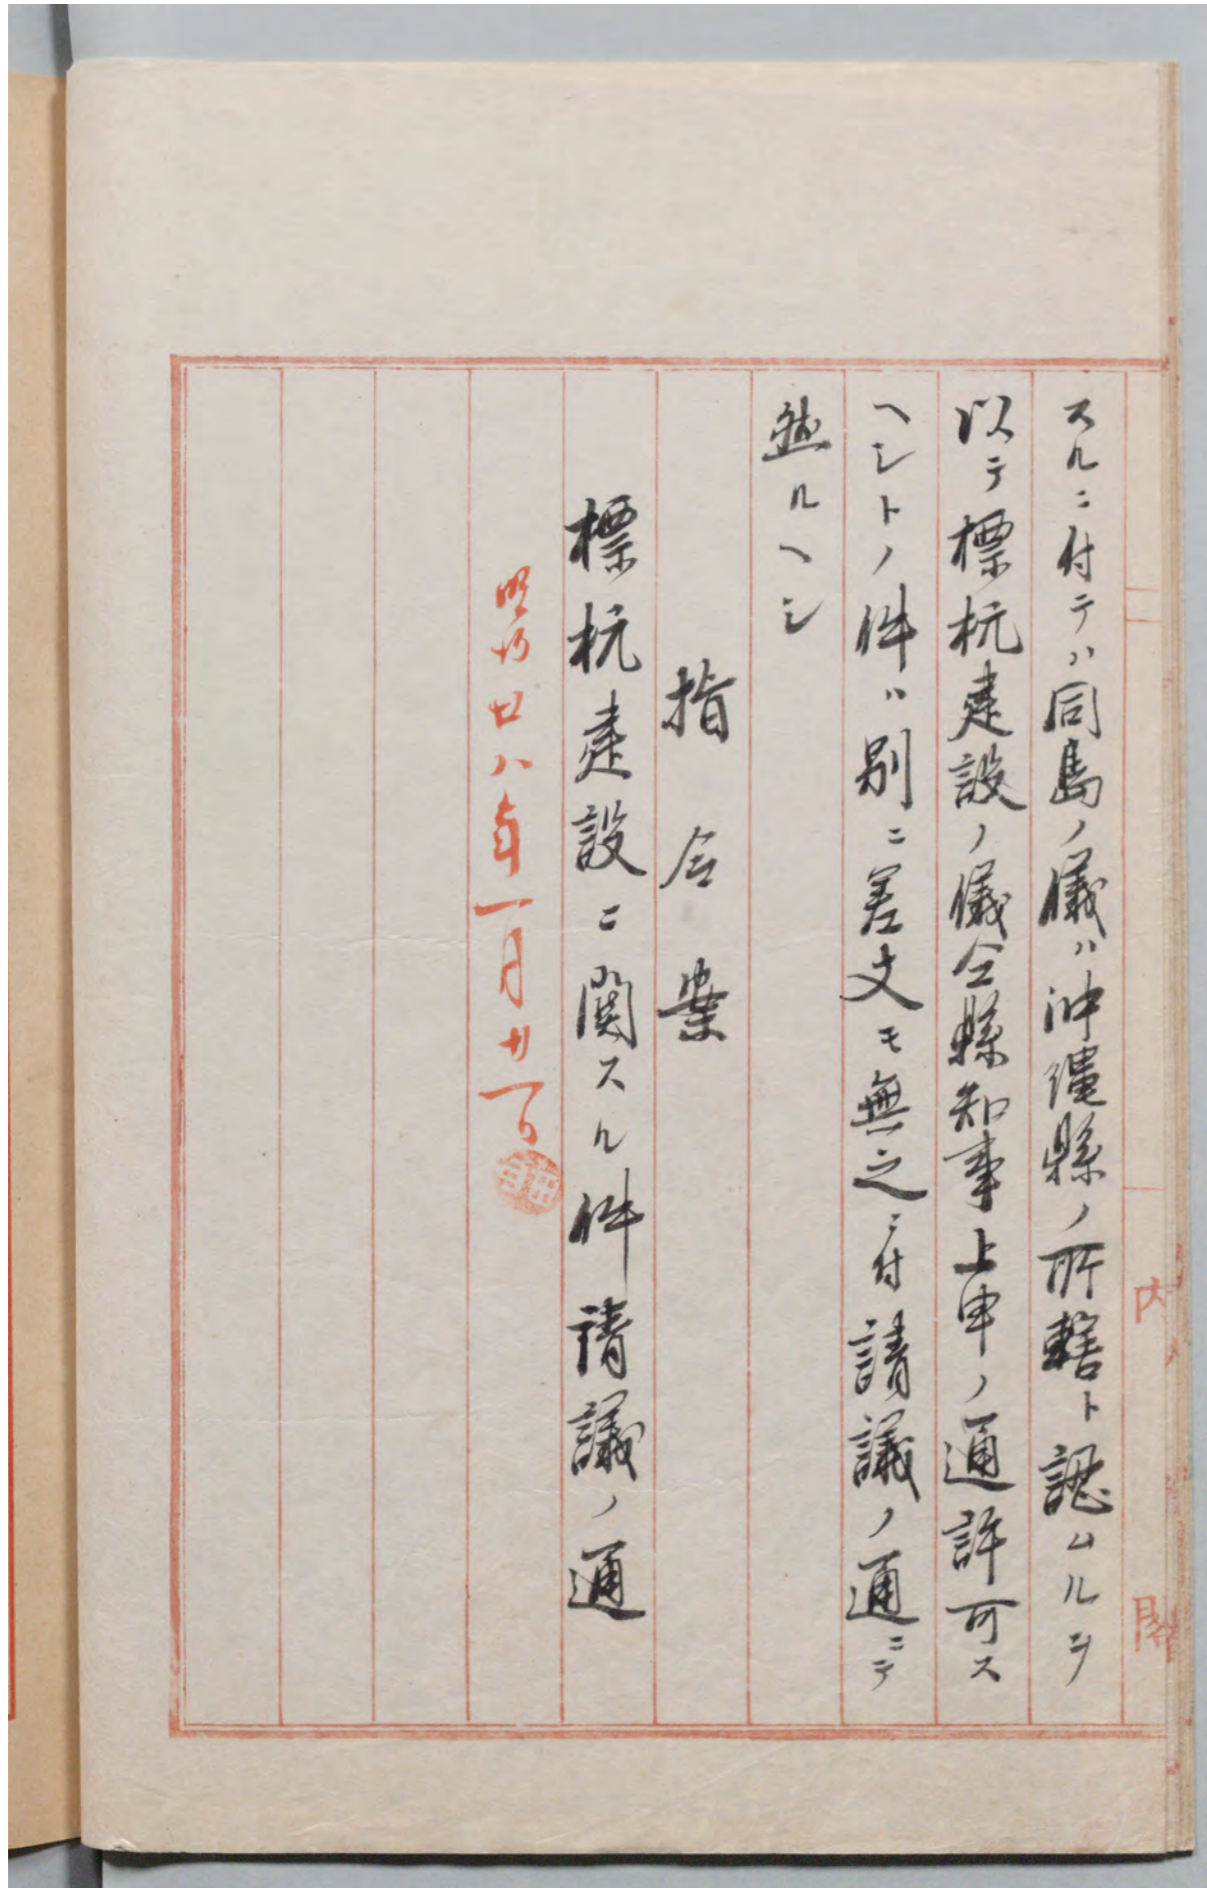 内閣
スルニ付テハ同島ノ儀ハ沖縄縣ノ所轄ト認ムルヲ
以テ標杭建設ノ儀仝縣知事上申ノ通許可ス
ヘシトノ件ハ別ニ差支モ無之ニ付請議ノ通ニテ
然ルヘシ
指令案
標杭建設ニ関スル件請議ノ通
明治廿八年一月廿一日